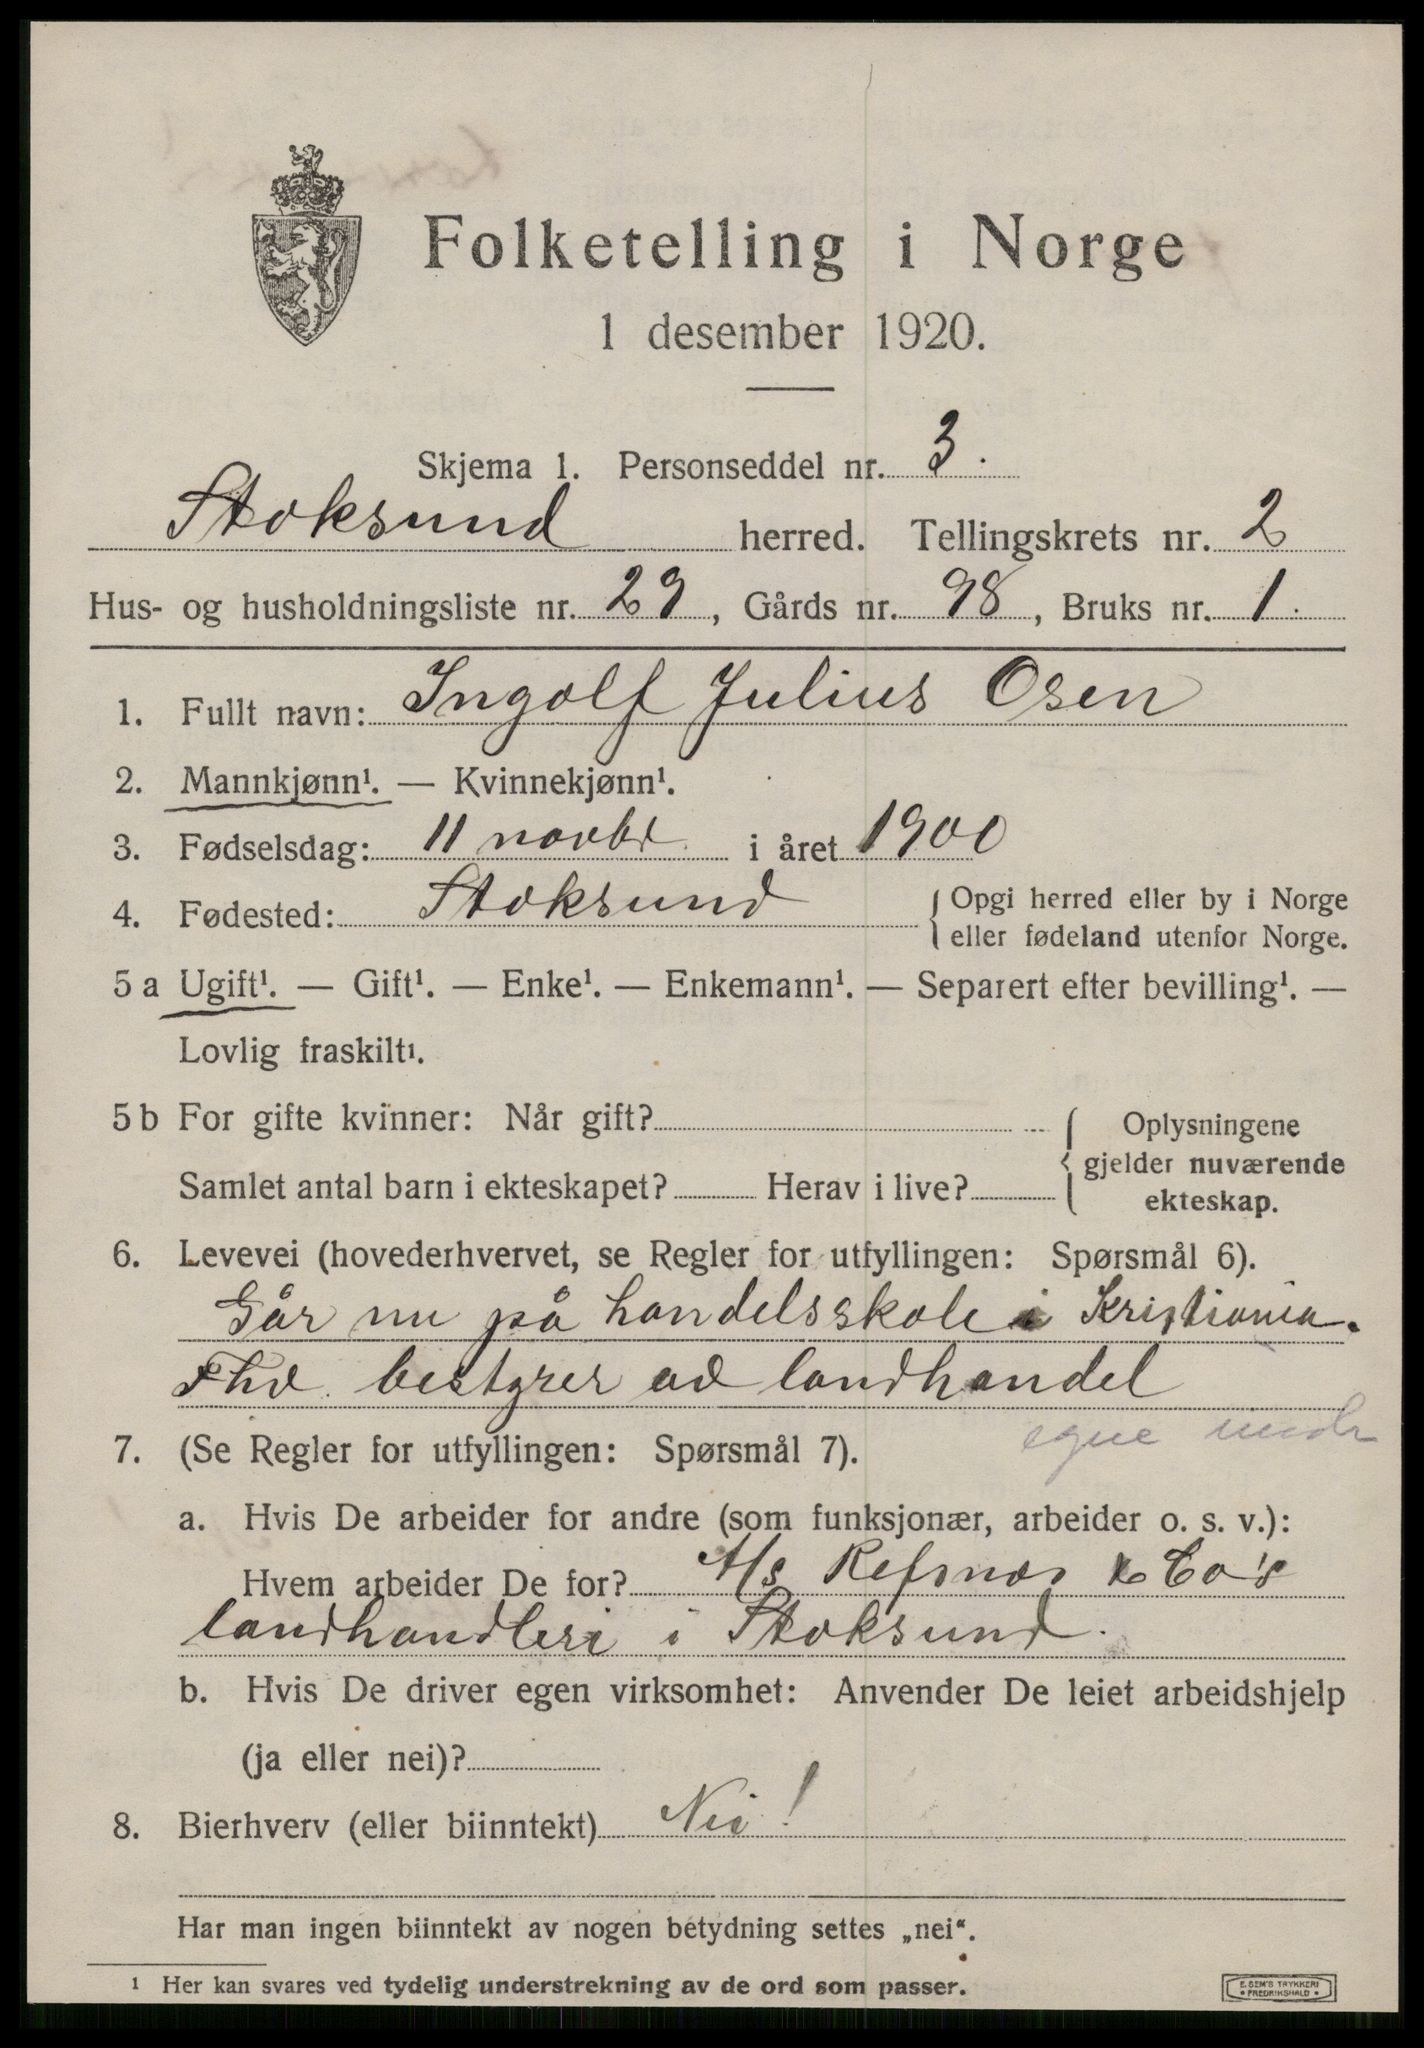 Folketelling i Norge
1 desember 1920.
Skjema 1. Personseddel nr. 3.
Stoksund herred. Tellingskrets nr. 2
Hus- og husholdningsliste nr. 29, Gårds nr. 98, Bruks nr. 1.
1. Fullt navn: Ingolf Julius Osen
2. Mannkjønn¹. — Kvinnekjønn¹.
3. Fødselsdag: 11 novbr. i året 1900
4. Fødested: Stoksund { Opgi herred eller by i Norge
eller fødeland utenfor Norge.
5 a Ugift¹. — Gift¹. — Enke¹. — Enkemann¹. — Separert efter bevilling¹. —
Lovlig fraskilt¹.
5 b For gifte kvinner: Når gift? { Oplysningene
gjelder nuværende
Samlet antal barn i ekteskapet? Herav i live?
ekteskap.
6. Levevei (hovederhvervet, se Regler for utfyllingen: Spørsmål 6).
Går nu på handelsskole i Kristiania.
Fhv. bestyrer av landhandel
egne midler
7. (Se Regler for utfyllingen: Spørsmål 7).
a. Hvis De arbeider for andre (som funksjonær, arbeider o. s. v.):
Hvem arbeider De for? A/s Refsnes & Co's
landhandleri i Stoksund.
b. Hvis De driver egen virksomhet: Anvender De leiet arbeidshjelp
(ja eller nei)?
8. Bierhverv (eller biinntekt) Nei!
Har man ingen biinntekt av nogen betydning settes „nei“.
¹ Her kan svares ved tydelig understrekning av de ord som passer.
E. SEM'S TRYKKERI
• FREDRIKSHALD •